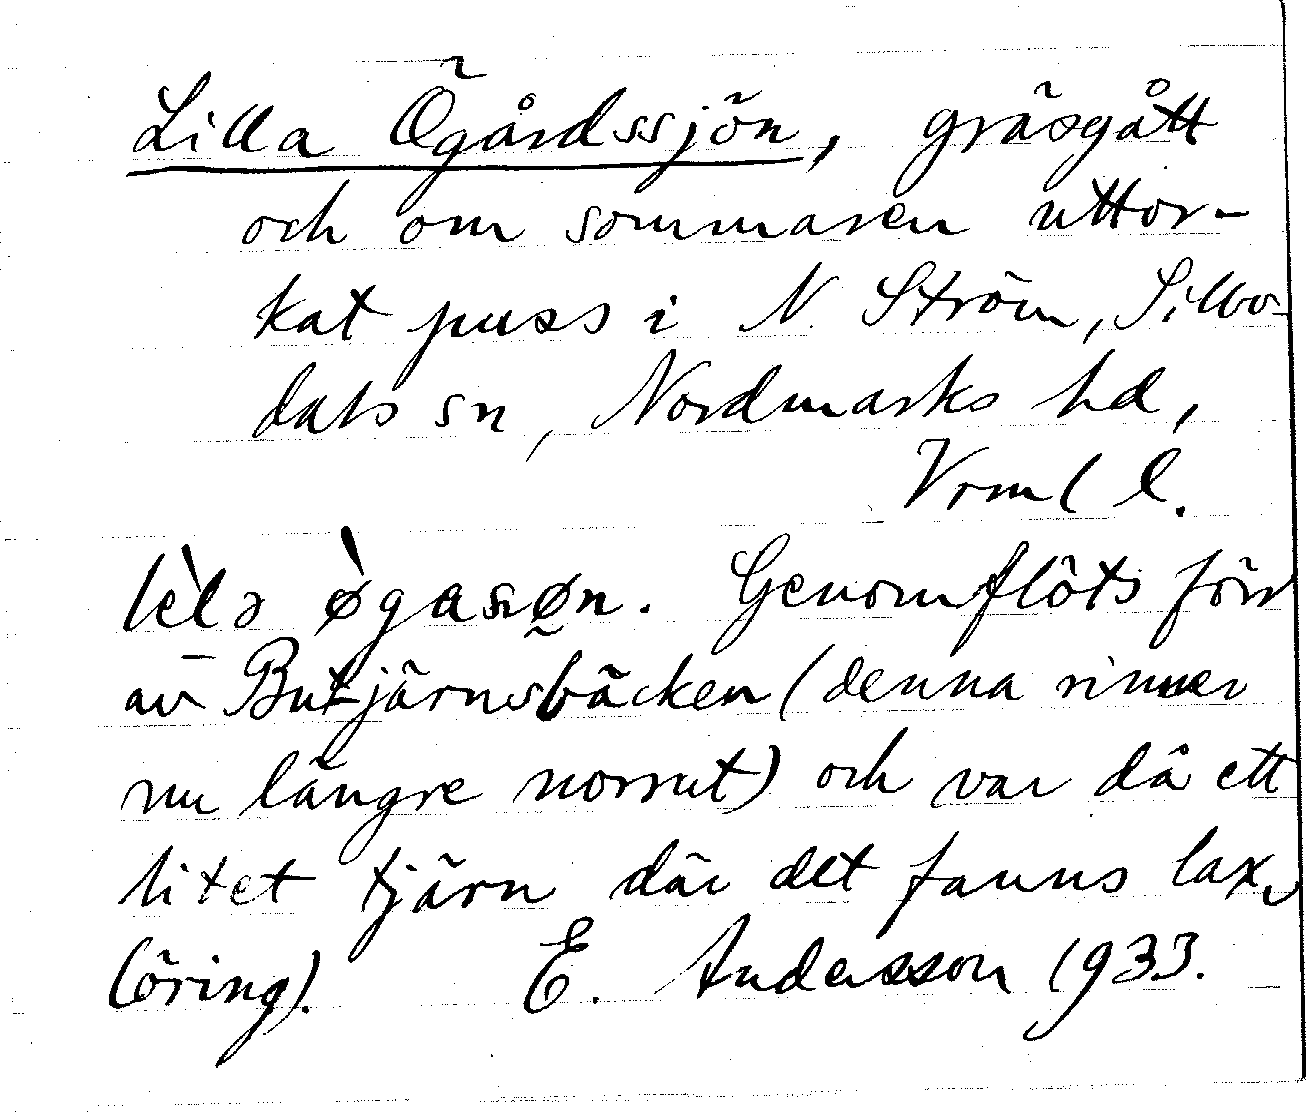 Lilla Ögårdssjön, gräsgått
och om sommaren uttor-
kat puss i N. Ström, Silbo-
dals sn, Nordmarks hd,
Vrml l.
lèla ø̀gasøn. Genomflöts förr
av Butjärnsbäcken (denna rinner
nu längre norrut) och var då ett
litet tjärn där det fanns lax
(öring). E. Andersson 1933.